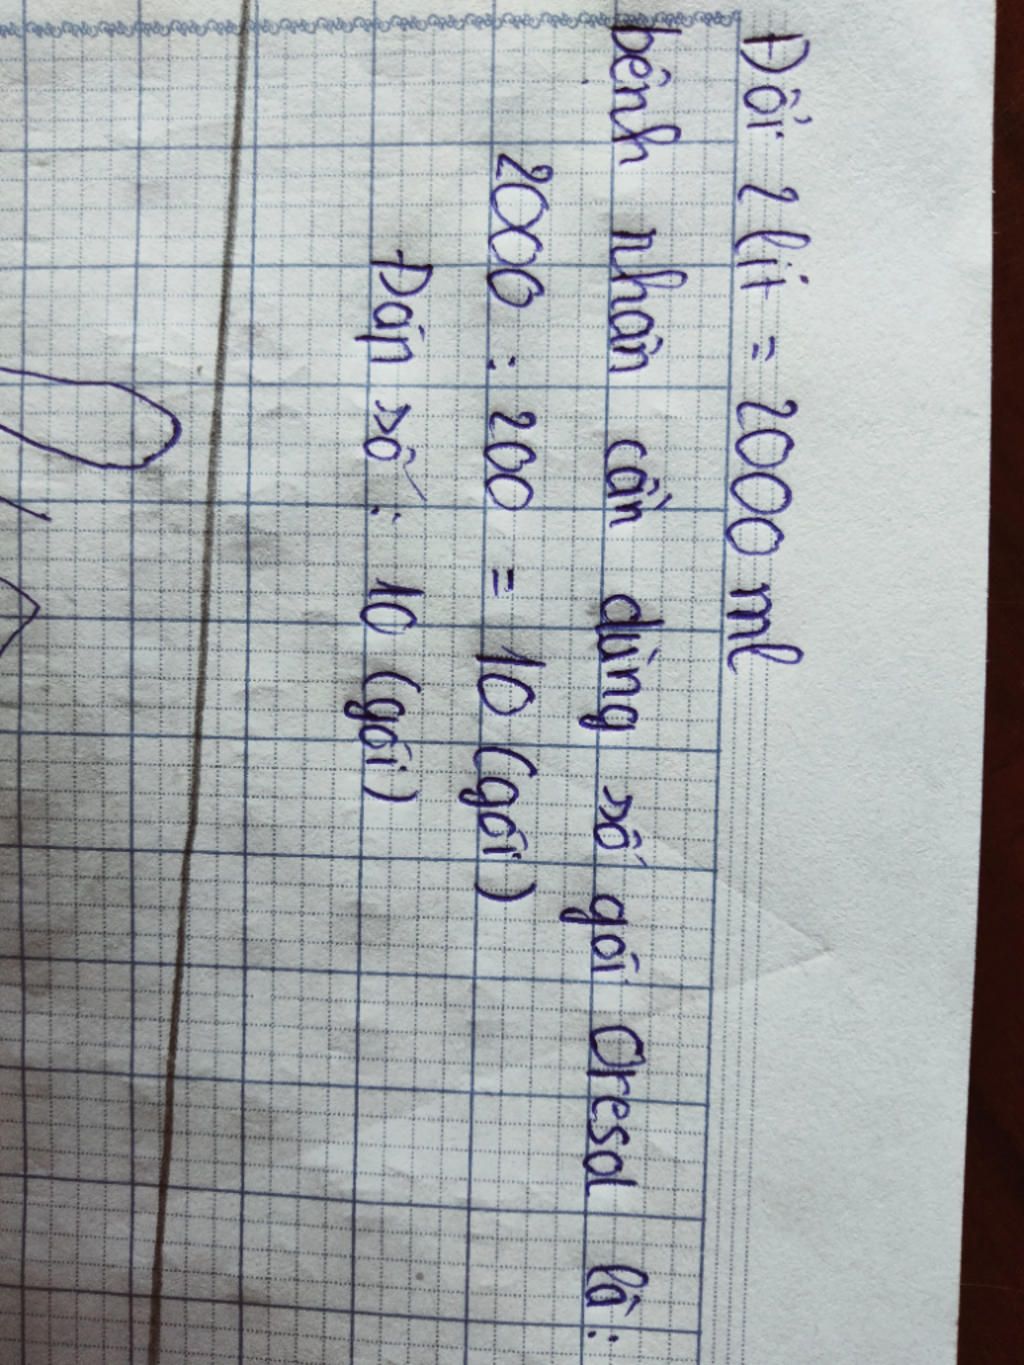 Đổi 2 lít = 2000 ml
bệnh nhân cần dùng số gói Oresol là:
2000 : 200 = 10 (gói)
Đáp số : 10 (gói)